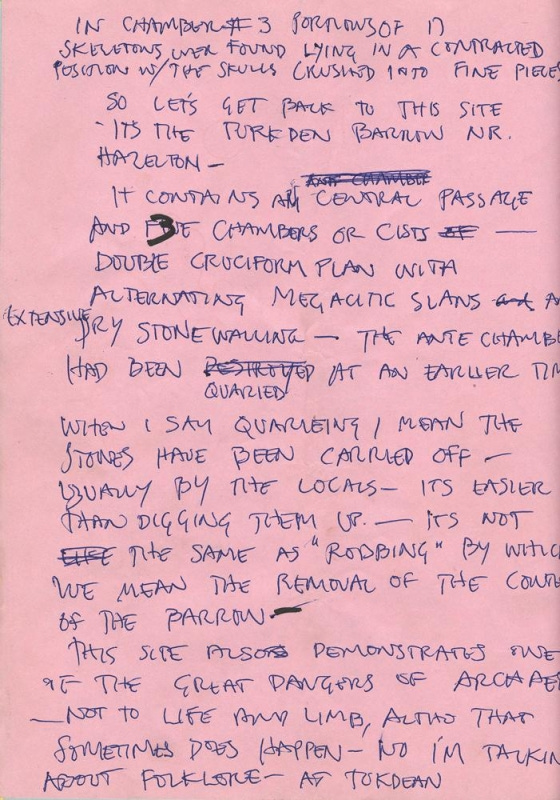 IN CHAMBER # 3 PORTIONS OF 17
SKELETONS WER FOUND LYING IN A CONTRACTED
POSITION W/ THE SKULLS CRUSHED INTO FINE PIECES
SO LET'S GET BACK TO THIS SITE
- IT'S THE TURKDEN BARROW NR.
HAZELTON —
ANTE CHAMBER
IT CONTAINS A CENTRAL PASSAGE
AND CHAMBERS OR CISTS —
DOUBLE CRUCIFORM PLAN WITH
ALTERNATING MEGALITIC SLABS and A
EXTENSIVE DRY STONE WALLING — THE ANTE CHAMBE
HAD BEEN DESTROYED AT AN EARLIER TIM
QUARIED
WHEN I SAY QUARREING I MEAN THE
STONES HAVE BEEN CARRIED OFF —
USUALLY BY THE LOCALS — ITS EASIER
THAN DIGGING THEM UP. — ITS NOT
THE SAME AS "ROBBING" BY WHIC
WE MEAN THE REMOVAL OF THE CONTE
OF THE BARROW —
THIS SITE ALSO DEMONSTRATES ONE
OF THE GREAT DANGERS OF ARCHAE
— NOT TO LIFE AND LIMB, ALTHO THAT
SOMETIMES DOES HAPPEN — NO I'M TALKIN
ABOUT FOLKLORE — AT TUKDEAN